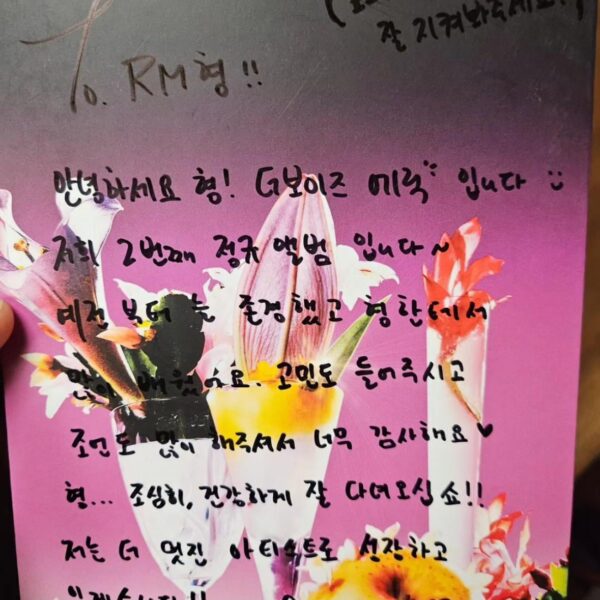 잘 지켜봐주세요!)
To. RM형!!
안녕하세요 형! G보이즈 에릭 입니다
저희 2번째 정규 앨범 입니다~
예전 부터 늘 존경했고 형한테서
많이 배웠어요. 고민도 들어주시고
조언도 많이 해주셔서 너무 감사해요♥
형... 조심히, 건강하게 잘 다녀오십쇼!!
저는 더 멋진 아티스트로 성장하고
있겠습니다!!